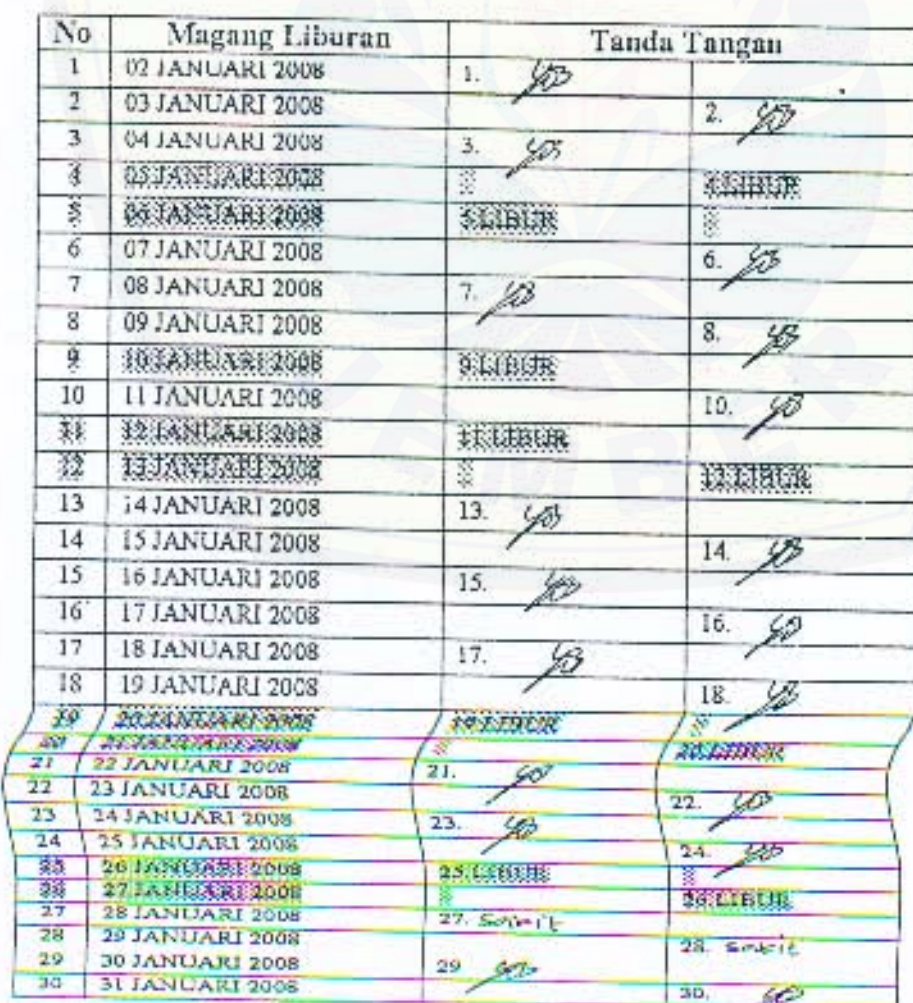 No Magang Liburan Tanda Tangan
1 02 JANUARI 2008 1.
2 03 JANUARI 2008 2.
3 04 JANUARI 2008 3.
4 05 JANUARI 2008 4.LIBUR
5 06 JANUARI 2008 5.LIBUR
6 07 JANUARI 2008 6.
7 08 JANUARI 2008 7.
8 09 JANUARI 2008 8.
9 10 JANUARI 2008 9.LIBUR
10 11 JANUARI 2008 10.
11 12 JANUARI 2008 11.LIBUR
12 13 JANUARI 2008 12.LIBUR
13 14 JANUARI 2008 13.
14 15 JANUARI 2008 14.
15 16 JANUARI 2008 15.
16 17 JANUARI 2008 16.
17 18 JANUARI 2008 17.
18 19 JANUARI 2008 18.
19 20 JANUARI 2008 19.LIBUR
20 21 JANUARI 2008 20.LIBUR
21 22 JANUARI 2008 21.
22 23 JANUARI 2008 22.
23 24 JANUARI 2008 23.
24 25 JANUARI 2008 24.
25 26 JANUARI 2008 25.LIBUR
26 27 JANUARI 2008 26.LIBUR
27 28 JANUARI 2008 27. Sakit
28 29 JANUARI 2008 28. Sakit
29 30 JANUARI 2008 29
30 31 JANUARI 2008 30.